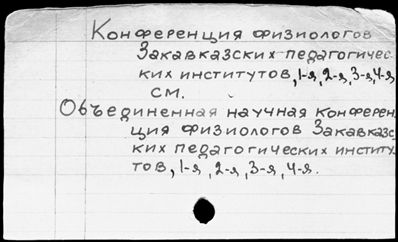 Конференция физиологов
Закавказских педагогичес-
ких институтов, 1-я, 2-я, 3-я, 4-я
см.
Объединенная научная конферен
ция физиологов Закавказс
ких педагогических институ-
тов, 1-я, 2-я, 3-я, 4-я.